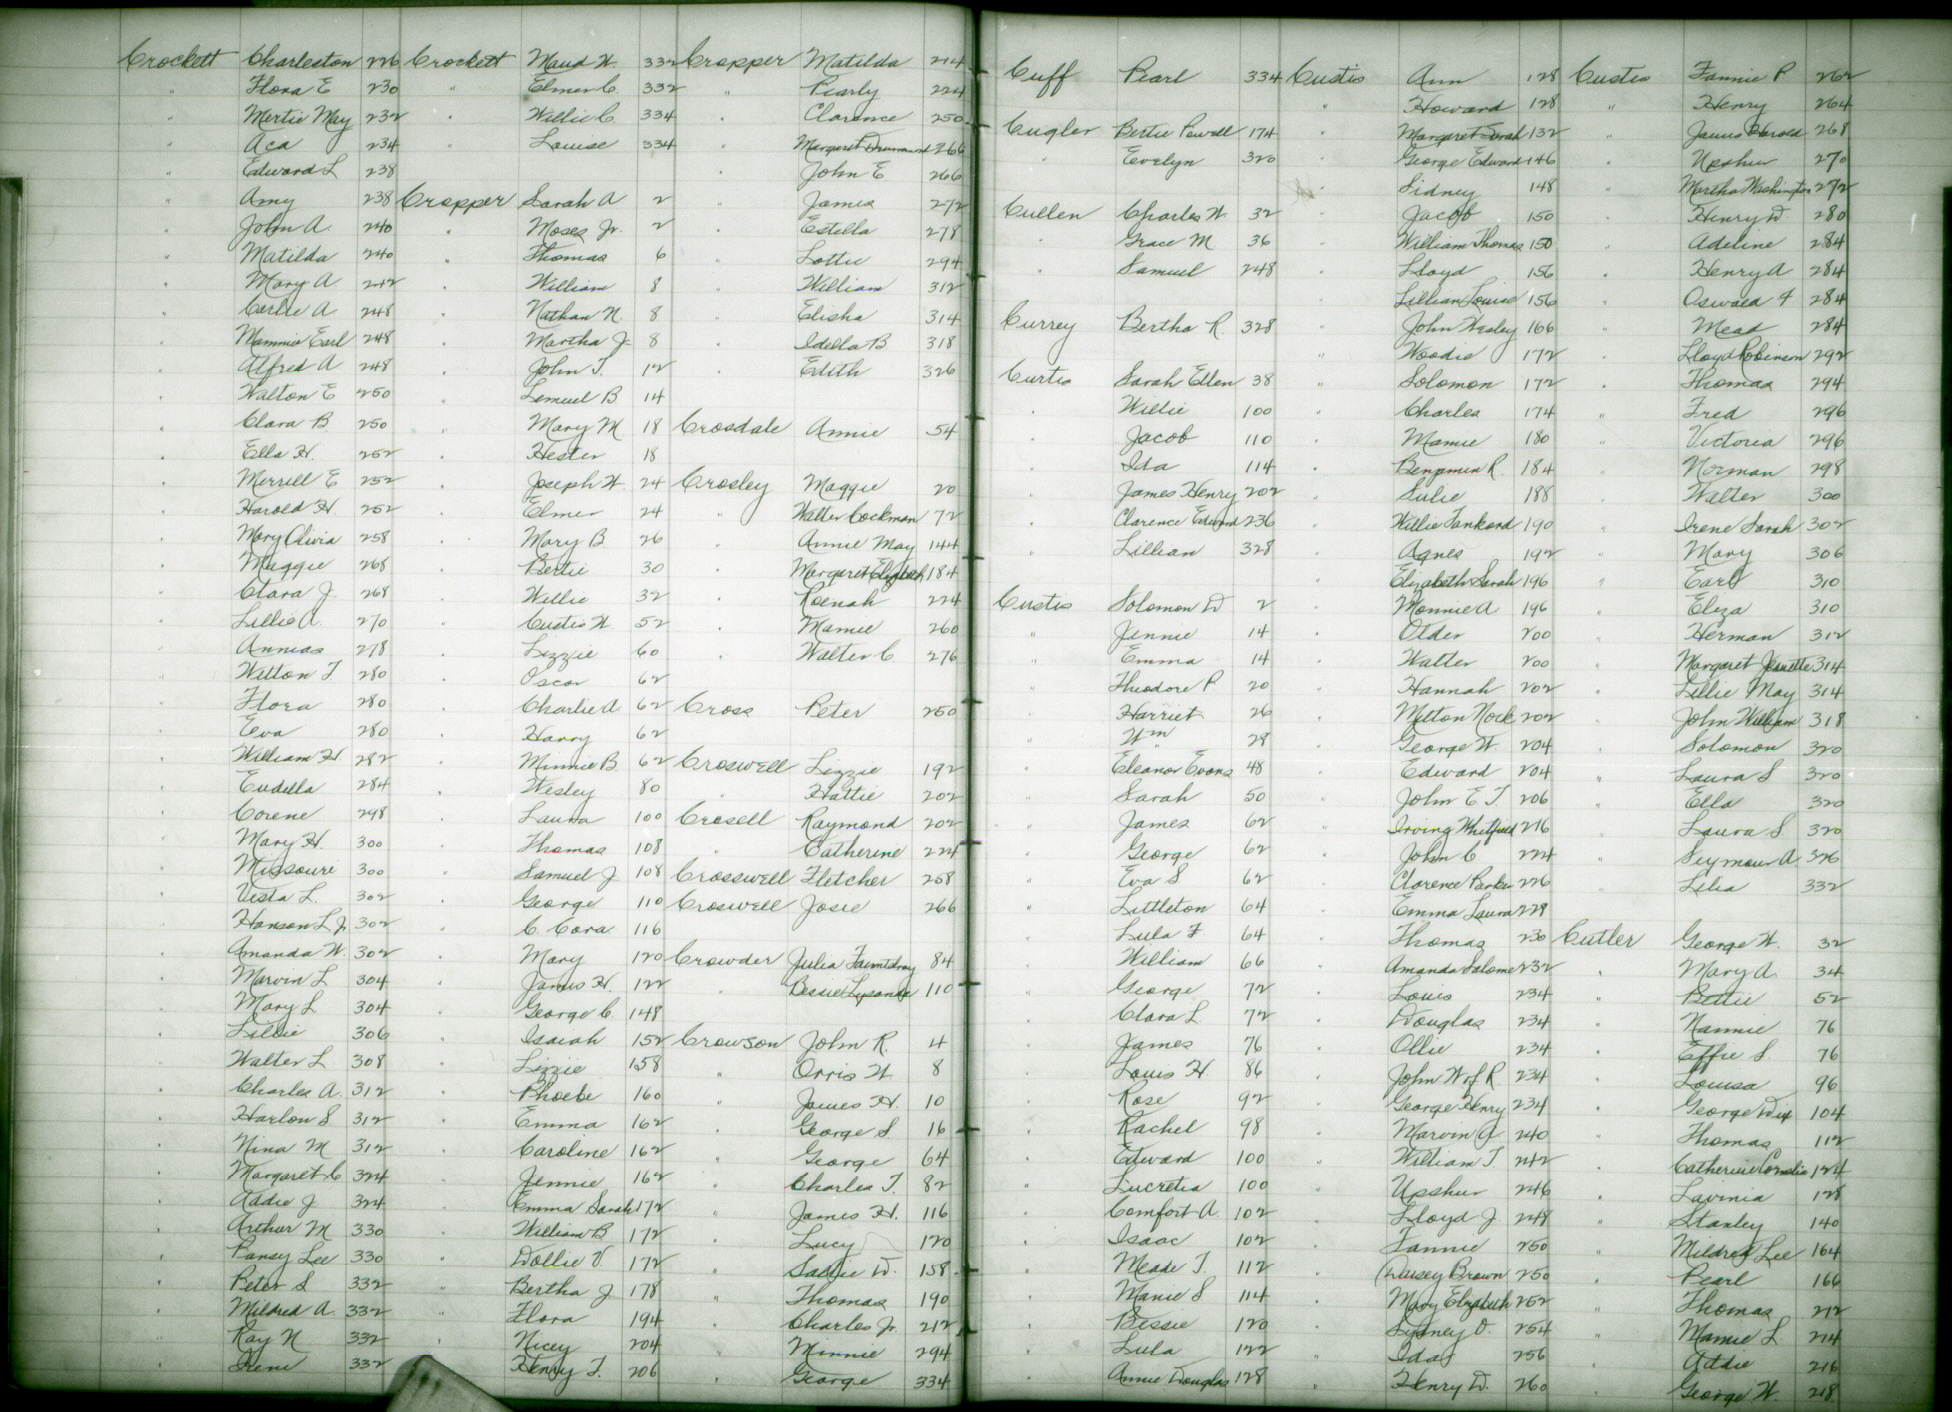 Crockett Charleston 226
" Flora E 230
" Mertie May 232
" Aca 234
" Edward L 238
" Amy 238
" John A. 240
" Matilda 240
" Mary A 242
" Carlie A 248
" Mammie Earl 248
" Alfred A 248
" Walton E 250
" Clara B. 250
" Ella H. 252
" Merrill E 252
" Harold H. 252
" Mary Olivia 258
" Maggie 268
" Clara J. 268
" Lillie A. 270
" Annias 278
" Wilton T 280
" Flora 280
" Eva 280
" William H 282
" Eudella 284
" Corene 298
" Mary H. 300
" Missouri 300
" Vesta L. 302
" Hanson L Jr 302
" Amanda W. 302
" Marvin L 304
" Mary L 304
" Lillie 306
" Walter L 308
" Charles A. 312
" Harlon S 312
" Nina M 312
" Margaret C 324
" Addie J 324
" Arthur M 330
" Pansy Lee 330
" Peter S 332
" Mildred A. 332
" Ray N 332
" Irene 332
Crockett Maud W. 332
" Elmer C. 332
" Willie C 334
" Louise 334
Cropper Sarah A 2
" Moses Jr. 2
" Thomas 6
" William 8
" Nathan N. 8
" Martha J 8
" John T. 12
" Lemuel B 14
" Mary M 18
" Hester 18
" Joseph W. 24
" Elmer 24
" Mary B. 26
" Bertie 30
" Willie 32
" Custis W. 52
" Lizzie 60
" Oscar 62
" Charlie A. 62
" Harry 62
" Minnie B 62
" Wesley 80
" Laura 100
" Thomas 108
" Samuel J 108
" George 110
" C. Cora 116
" Mary 120
" James H. 122
" George C. 148
" Isaiah 152
" Lizzie 158
" Phoebe 160
" Emma 162
" Caroline 162
" Jennie 162
" Emma Sarah 172
" William B 172
" Dollie V. 172
" Bertha J 178
" Flora 194
" Nicey 204
" Henry T. 206
Cropper Matilda 214
" Pearly 224
" Clarence 250
" Margaret Drummond 266
" John E 266
" James 272
" Estella 278
" Lottie 294
" William 312
" Elisha 314
" Idella B 318
" Edith 326
Crosdale Annie 54
Crosley Maggie 20
" Walter Cockman 72
" Annie May 144
" Margaret Elizabeth 184
" Roenah 224
" Mamie 260
" Walter C. 276
Cross Peter 250
Croswell Lizzie 192
" Hattie 202
Crosell Raymond 202
" Catherine 224
Crosswell Fletcher 258
Croswell Josie 266
Crowder Julia 84
" Bessie Lysander 110
Crowson John R. 4
" Orris W 8
" James H. 10
" George S. 16
" George 64
" Charles T. 82
" James H. 116
" Lucy 120
" Sallie W. 158
" Thomas 190
" Charles Jr 212
" Minnie 294
" George 334
Cuff Pearl 334
Cugler Bertie Powell 174
" Evelyn 320
Cullen Charles W. 32
" Grace M 36
" Samuel 248
Currey Bertha R. 328
Curtis Sarah Ellen 38
" Willie 100
" Jacob 110
" Ida 114
" James Henry 202
" Clarence Edward 236
" Lillian 328
Custis Solomon D 2
" Jennie 14
" Emma 14
" Theodore P 20
" Harriet 26
" Wm 28
" Eleanor Evans 48
" Sarah 50
" James 62
" George 62
" Eva S 62
" Littleton 64
" Lula F. 64
" William 66
" George 72
" Clara L. 72
" James 76
" Louis H. 86
" Rose 92
" Rachel 98
" Edward 100
" Lucretia 100
" Comfort A. 102
" Isaac 102
" Meade T. 112
" Manie S 114
" Bessie 120
" Lula 122
" Annie Douglas 128
Custis Ann 128
" Howard 128
" Margaret Sarah 132
" George Edward 146
" Sidney 148
" Jacob 150
" William Thomas 150
" Lloyd 156
" Lillian Louise 156
" John Wesley 166
" Woodie 172
" Solomon 172
" Charles 174
" Mamie 180
" Benjamin R. 184
" Sulie 188
" Willie Tankard 190
" Agnes 192
" Elizabeth Sarah 196
" Monnie A 196
" Older 200
" Walter 200
" Hannah 202
" Milton Nock 202
" George W. 204
" Edward 204
" John E T. 206
" Irving Whitfield 216
" John C 224
" Clarence Parker 226
" Emma Laura 229
" Thomas 230
" Amanda Salome 232
" Louis 234
" Douglas 234
" Ollie 234
" John W of R. 234
" George Henry 234
" Marvin J 240
" William T. 242
" Upshur 246
" Lloyd J. 248
" Fannie 250
" Daisey Brown 250
" Mary Elizabeth 252
" Sydney O. 254
" Ida 256
" Henry D. 260
Custis Fannie P 262
" Henry 264
" James Harold 268
" Upshur 270
" Martha Washington 272
" Henry D. 280
" Adeline 284
" Henry A 284
" Oswald F 284
" Mead 284
" Lloyd Robinson 292
" Thomas 294
" Fred 296
" Victoria 296
" Norman 298
" Walter 300
" Irene Sarah 302
" Mary 306
" Earl 310
" Eliza 310
" Herman 312
" Margaret Jeanette 314
" Lillie May 314
" John William 318
" Solomon 320
" Laura S 320
" Ella 320
" Laura S. 320
" Seymour A. 326
" Lelia 332
Cutler George W. 32
" Mary A. 34
" Bettie 52
" Nannie 76
" Effie S. 76
" Louisa 96
" George Dix 104
" Thomas 112
" Catherine Cornelia 124
" Lavinia 128
" Stanley 140
" Mildred Lee 164
" Pearl 166
" Thomas 212
" Mamie L. 214
" Addie 216
" George W. 218